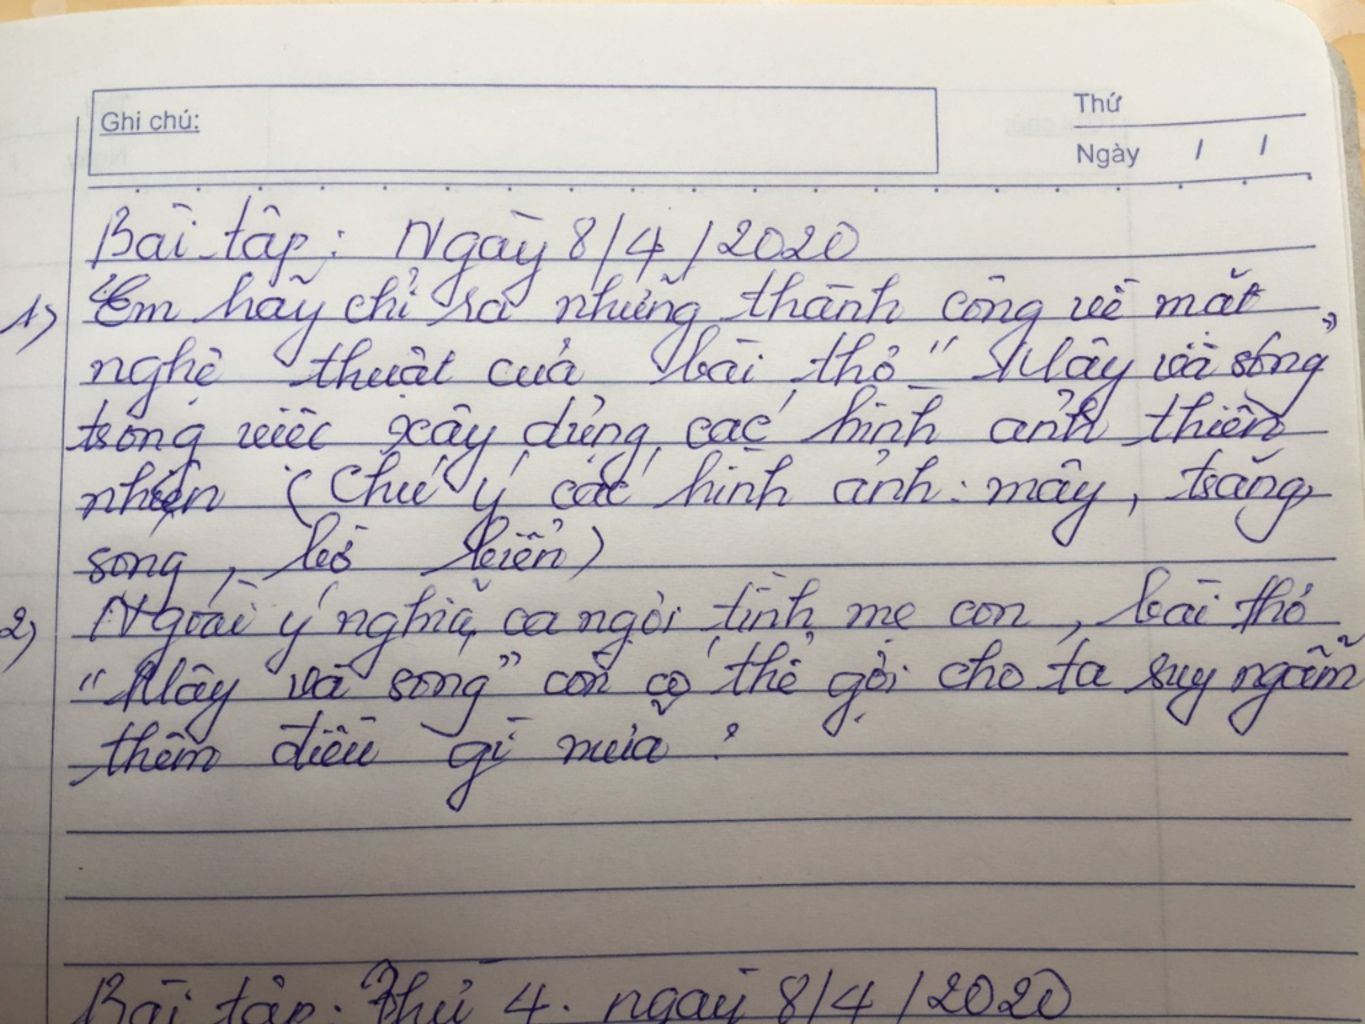 Ghi chú:
Thứ
Ngày / /
Bài tập: Ngày 8/4/2020
1) Em hãy chỉ ra những thành công về mặt
nghệ thuật của bài thơ "Mây và sóng"
trong việc xây dựng các hình ảnh thiên
nhiên (Chú ý các hình ảnh: mây, trăng,
sóng, bờ biển)
2) Ngoài ý nghĩa ca ngợi tình mẹ con, bài thơ
"Mây và sóng" còn có thể gợi cho ta suy ngẫm
thêm điều gì nữa?
Bài tập: Thứ 4. ngày 8/4/2020